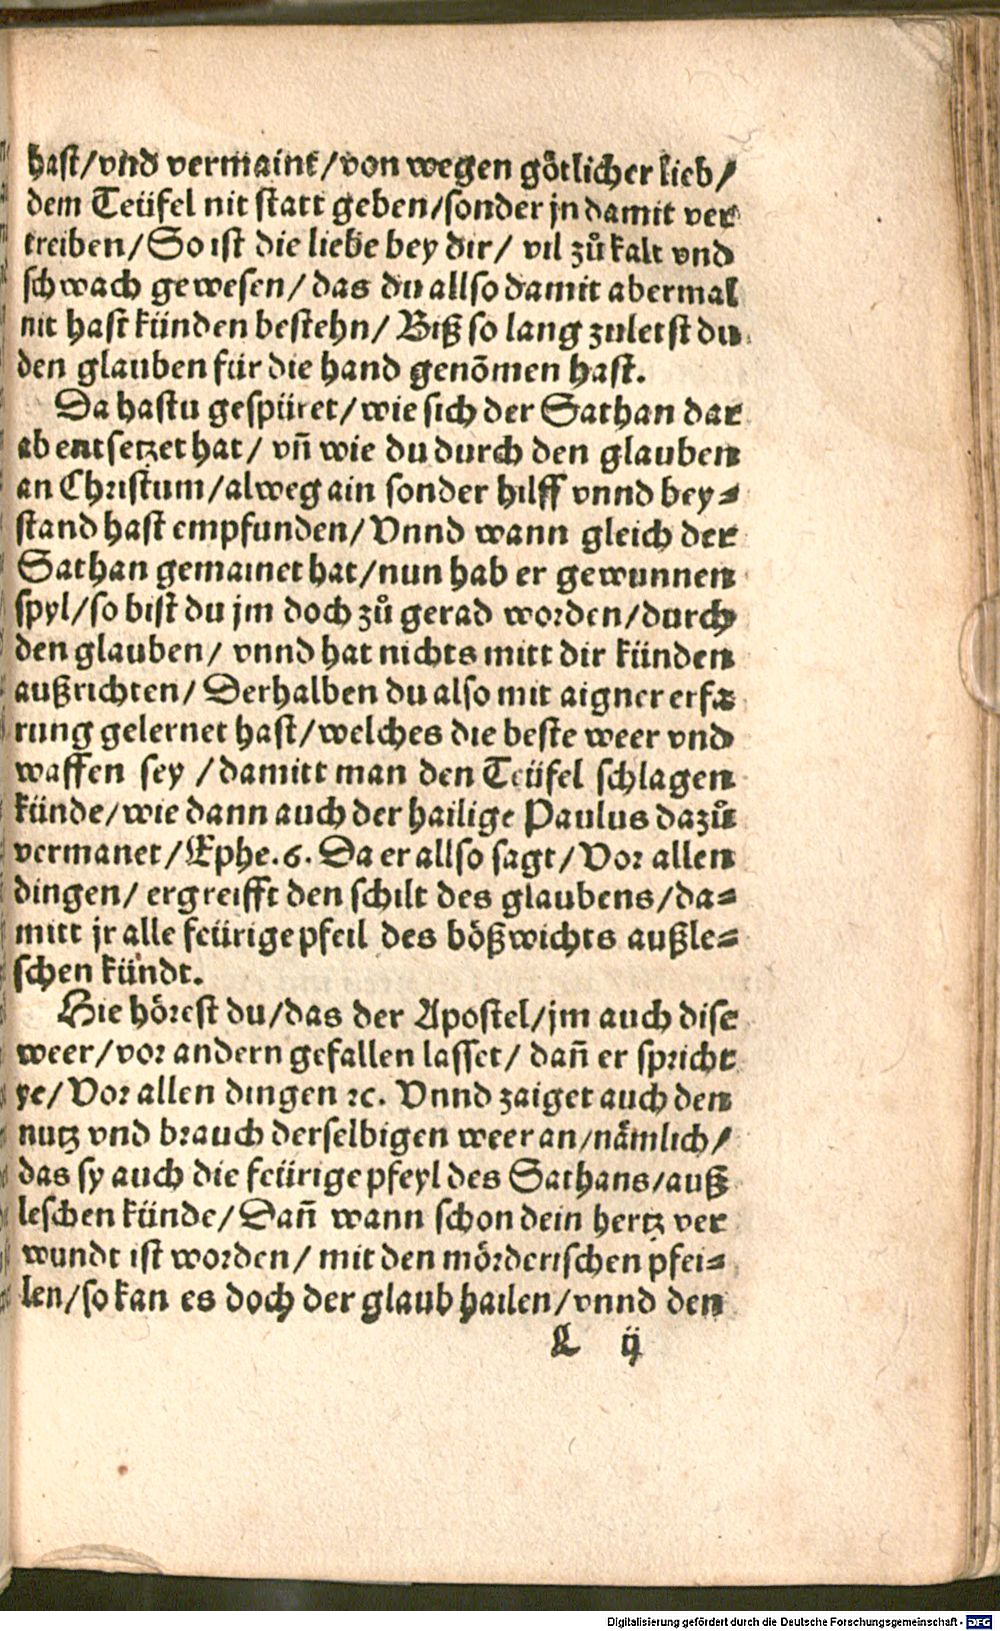 hast/vnd vermaint/von wegen götlicher lieb/
dem Teüfel nit statt geben/sonder jn damit ver
treiben/So ist die liebe bey dir/ vil zů kalt vnd
schwach gewesen/ das du allso damit abermal
nit hast künden bestehn/ Biß so lang zuletst du
den glauben für die hand genõmen hast.
Da hastu gespüret/wie sich der Sathan dar
ab entsetzet hat/ vñ wie du durch den glauben
an Christum/alweg ain sonder hilff vnnd bey=
stand hast empfunden/Vnnd wann gleich der
Sathan gemainet hat/nun hab er gewunnen
spyl/so bist du jm doch zů gerad worden/durch
den glauben/ vnnd hat nichts mitt dir künden
außrichten/ Derhalben du also mit aigner erfa
rung gelernet hast/welches die beste weer vnd
waffen sey /damitt man den Teüfel schlagen
künde/wie dann auch der hailige Paulus dazů
vermanet/Ephe.6. Da er allso sagt/Vor allen
dingen/ ergreifft den schilt des glaubens/da=
mitt jr alle feürige pfeil des bößwichts außle=
schen kündt.
Hie hörest du/das der Apostel/jm auch dise
weer/vor andern gefallen lasset/ dañ er spricht
ye/Vor allen dingen ꝛc. Vnnd zaiget auch den
nutz vnd brauch derselbigen weer an/nämlich/
das sy auch die feürige pfeyl des Sathans/auß
leschen künde/Dañ wann schon dein hertz ver
wundt ist worden/ mit den mörderischen pfei=
len/so kan es doch der glaub hailen/vnnd den
L ij
Digitalisierung gefördert durch die Deutsche Forschungsgemeinschaft - DFG